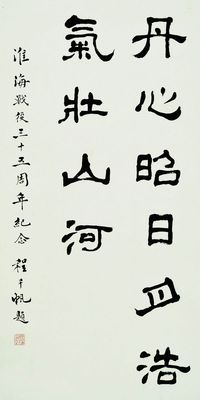 丹心昭日月浩
氣壯山河
淮海戰後三十五周年紀念 程千帆題